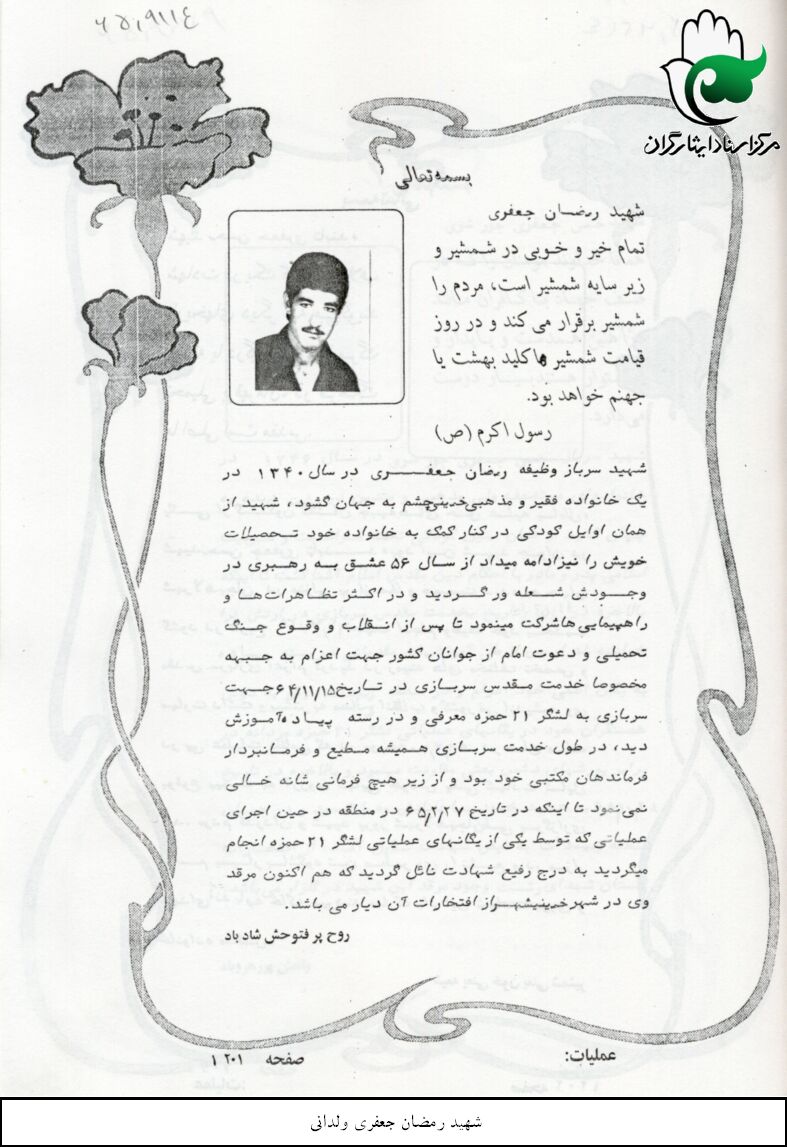 ۶۵,۹۱۱٤
مرکز اسناد ایثارگران
بسمه تعالی
شهید رمضان جعفری
تمام خیر و خوبی در شمشیر و
زیر سایه شمشیر است، مردم را
شمشیر برقرار می کند و در روز
قیامت شمشیر ها کلید بهشت یا
جهنم خواهد بود.
رسول اکرم (ص)
شهید سرباز وظیفه رمضان جعفری در سال ۱۳۴۰ در
یک خانواده فقیر و مذهبی خمینی چشم به جهان گشود، شهید از
همان اوایل کودکی در کنار کمک به خانواده خود تحصیلات
خویش را نیز ادامه میداد از سال ۵۶ عشق به رهبری در
وجودش شعله ور گردید و در اکثر تظاهرات ها و
راهپیمایی ها شرکت مینمود تا پس از انقلاب و وقوع جنگ
تحمیلی و دعوت امام از جوانان کشور جهت اعزام به جبهه
مخصوصا خدمت مقدس سربازی در تاریخ ۶۴/۱۱/۱۵ جهت
سربازی به لشگر ۲۱ حمزه معرفی و در رسته پیاده آموزش
دید، در طول خدمت سربازی همیشه مطیع و فرمانبردار
فرماندهان مکتبی خود بود و از زیر هیچ فرمانی شانه خالی
نمی نمود تا اینکه در تاریخ ۶۵/۲/۲۷ در منطقه در حین اجرای
عملیاتی که توسط یکی از یگانهای عملیاتی لشگر ۲۱ حمزه انجام
میگردید به درج رفیع شهادت نائل گردید که هم اکنون مرقد
وی در شهر خمینیشهر از افتخارات آن دیار می باشد.
روح پر فتوحش شاد باد
عملیات: صفحه ۱۲۰۱
شهید رمضان جعفری ولدانی